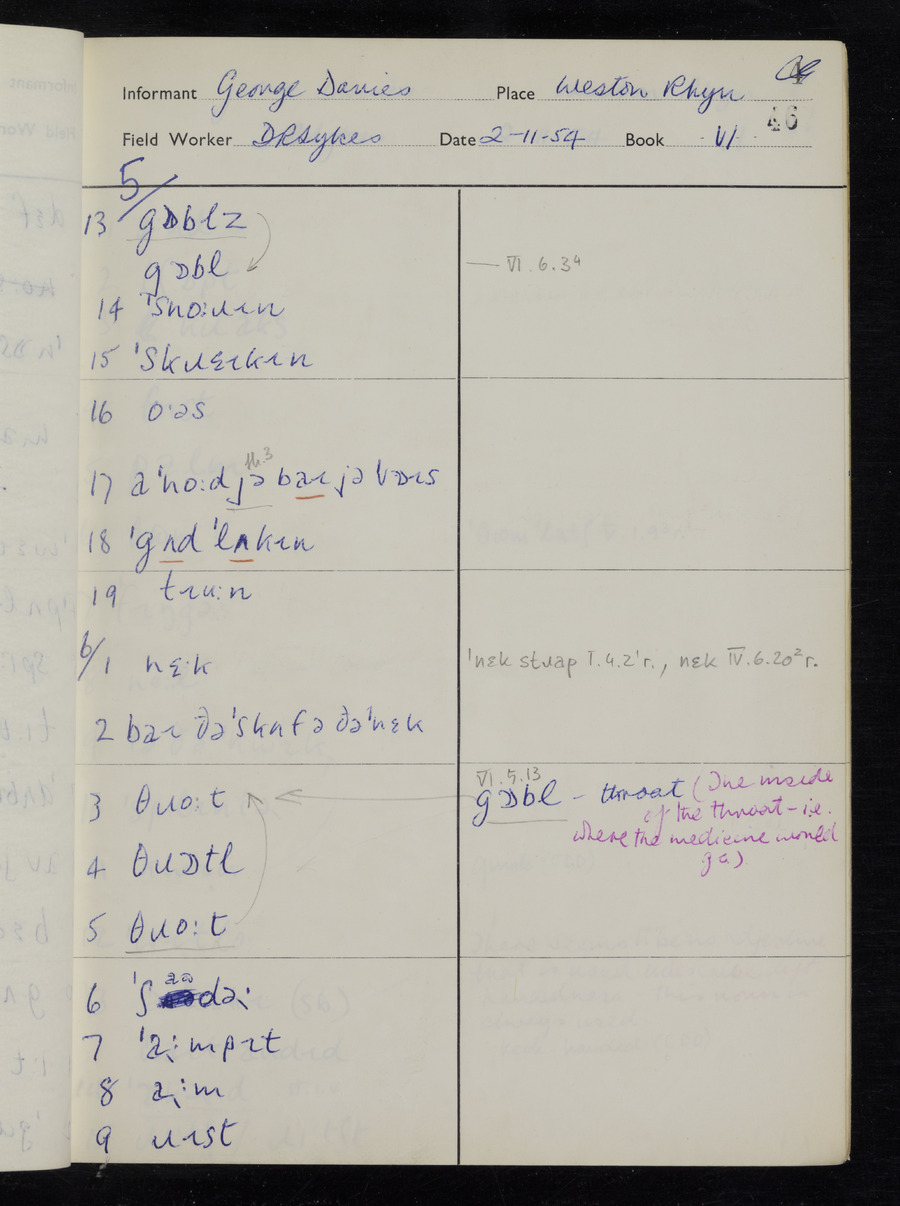 Informant George Davies Place Weston Rhyn
46
Field Worker DRSykes Date 2-11-54 Book VI
5/
13 gɒblz
gɒbl — VI.6.3⁴
14 'snɔ:ɹɪn
15 'skɹɛɪkɪn
16 o·əs
th.3
17 ə'no:d jə baɪ jə vɒɪs
18 'gʌd 'lʌkɪn
19 tɹu:n
6/1 nɛ·k 'nɛk stɹap I.4.2'r., nɛk IV.6.20²r.
2 baɪ ðə 'skʌf ə ðə 'nɛk
VI.5.13
3 θɹo:t gɒbl - throat (The inside
of the throat - i.e.
where the medicine would
go)
4 θɹɒtl
5 θɹo:t
6 'ʃ də:
7 'a:mpɪt
8 a:m
9 ɹɪst